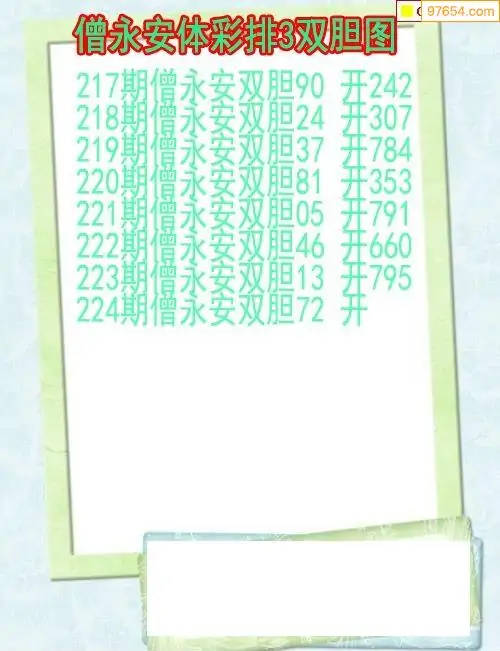 97654.com
僧永安体彩排3双胆图
217期僧永安双胆90 开242
218期僧永安双胆24 开307
219期僧永安双胆37 开784
220期僧永安双胆81 开353
221期僧永安双胆05 开791
222期僧永安双胆46 开660
223期僧永安双胆13 开795
224期僧永安双胆72 开